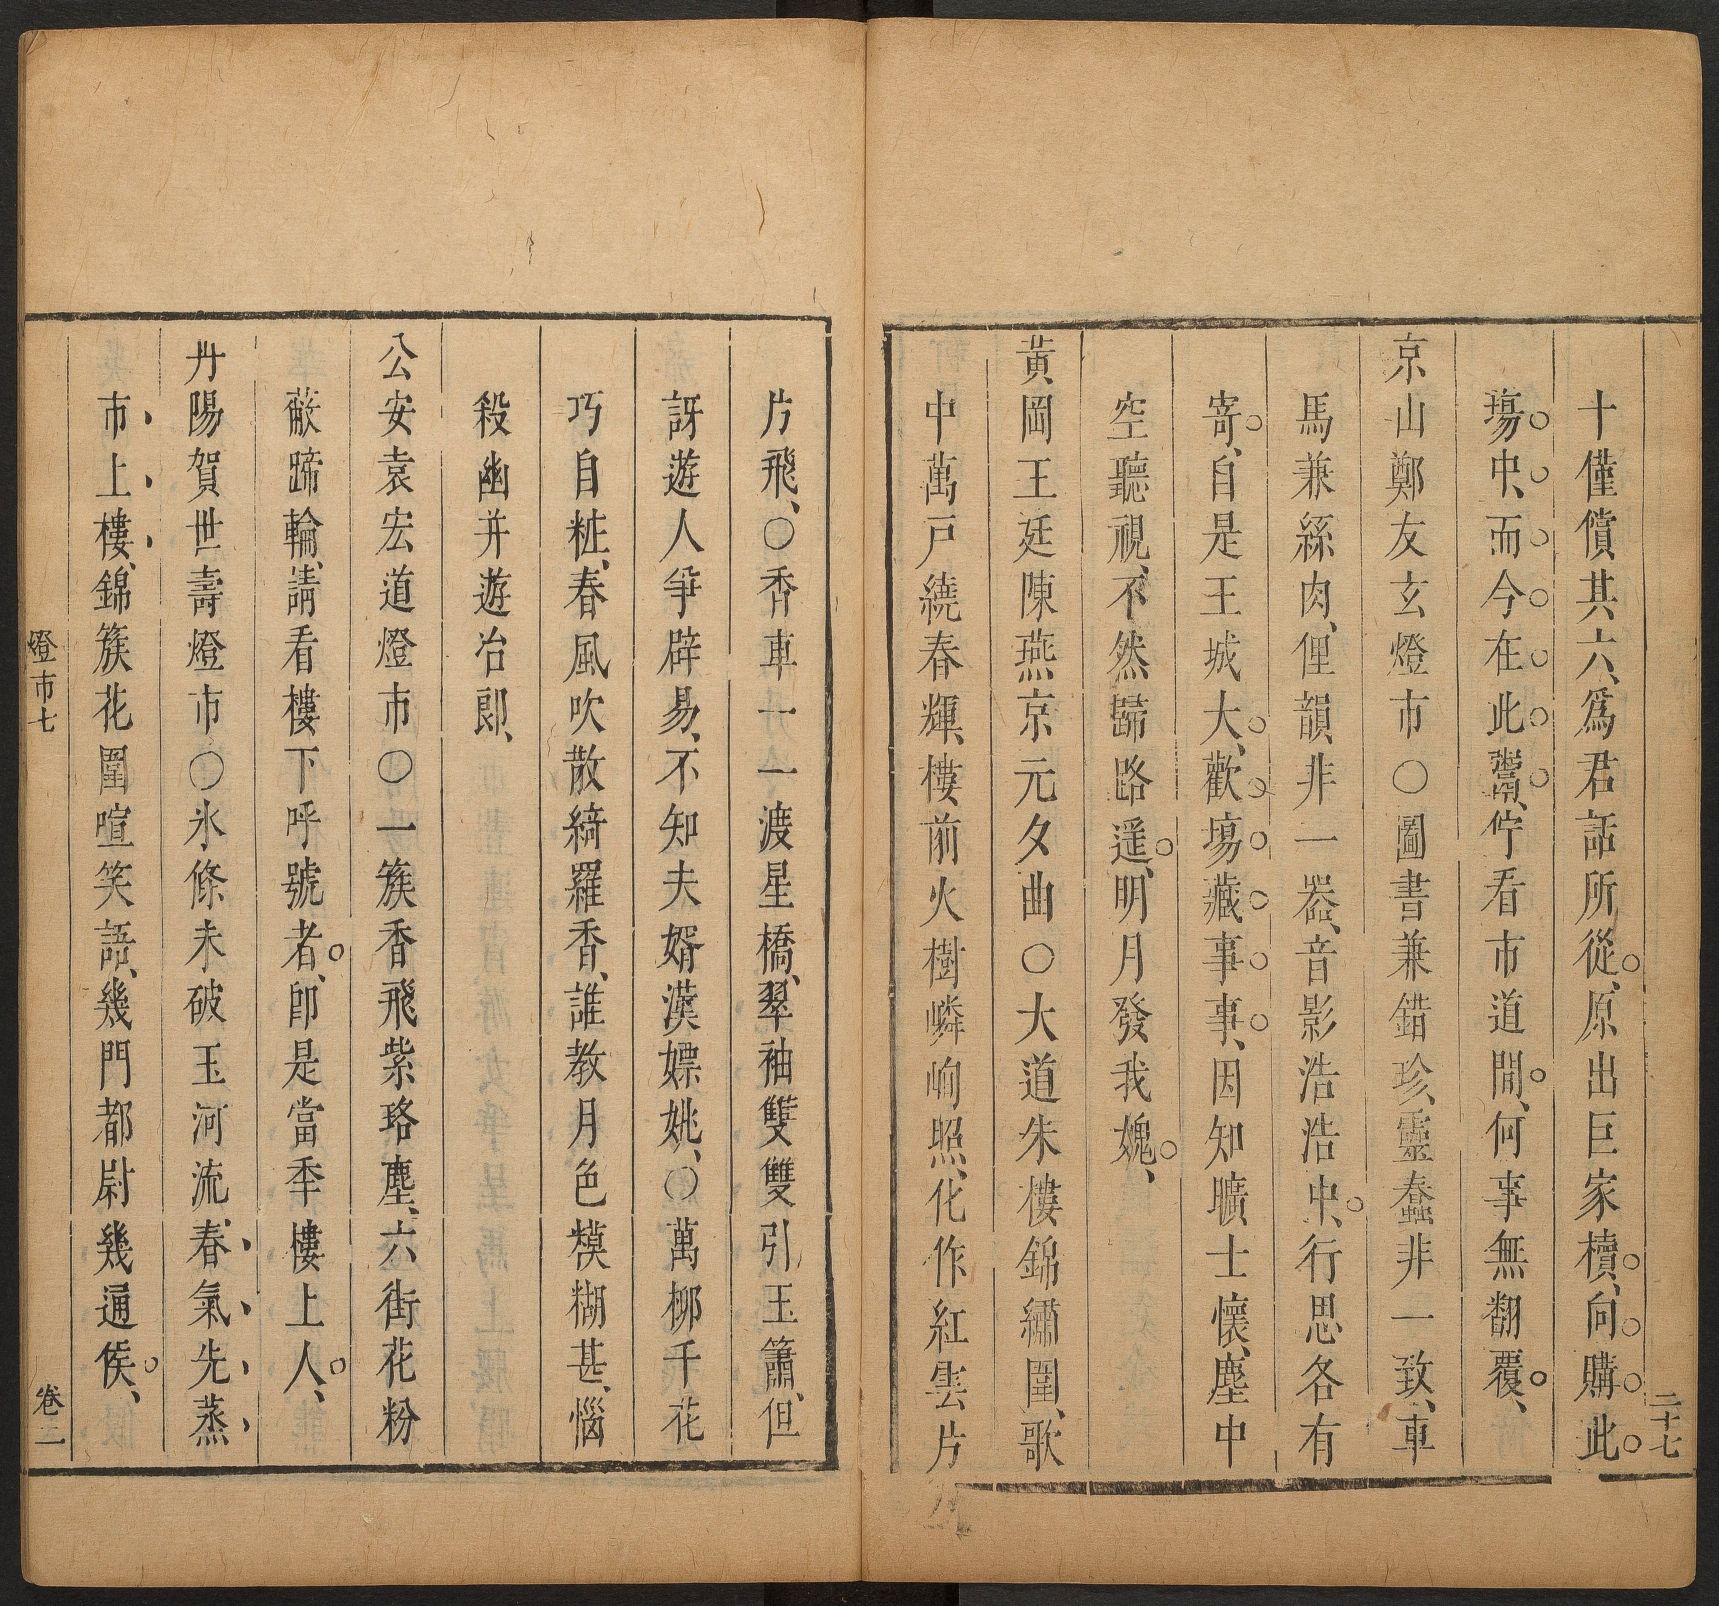 二十七
十僅償其六、爲君話所從、原出巨家櫝、向購此
塲中、而今在此鬻、佇看市道間、何事無翻覆、
京山鄭友玄燈市○圖書兼錯珍、靈蠢非一致、車
馬兼絲肉、俚韻非一器、音影浩浩中、行思各有
寄、自是王城大、歡塲藏事事、因知曠士懷、塵中
空聽視、不然歸路遥、明月發我媿、
黃岡王廷陳燕京元夕曲○大道朱樓錦繡圍、歌
中萬戸繞春輝、樓前火樹嶙峋照、化作紅雲片
片飛、○香車一一渡星橋、翠袖雙雙引玉簫、但
訝遊人爭辟易、不知夫婿漢嫖姚、○萬栁千花
巧自粧、春風吹散綺羅香、誰教月色糢糊甚、惱
殺幽并遊冶郎、
公安袁宏道燈市○一簇香飛紫珞塵、六街花粉
蔽蹄輪、請看樓下呼號者、即是當年樓上人、
丹陽賀世壽燈市○氷條未破玉河流、春氣先蒸
市上樓、錦簇花圍喧笑語、幾門都尉幾通侯、
燈市七
卷二